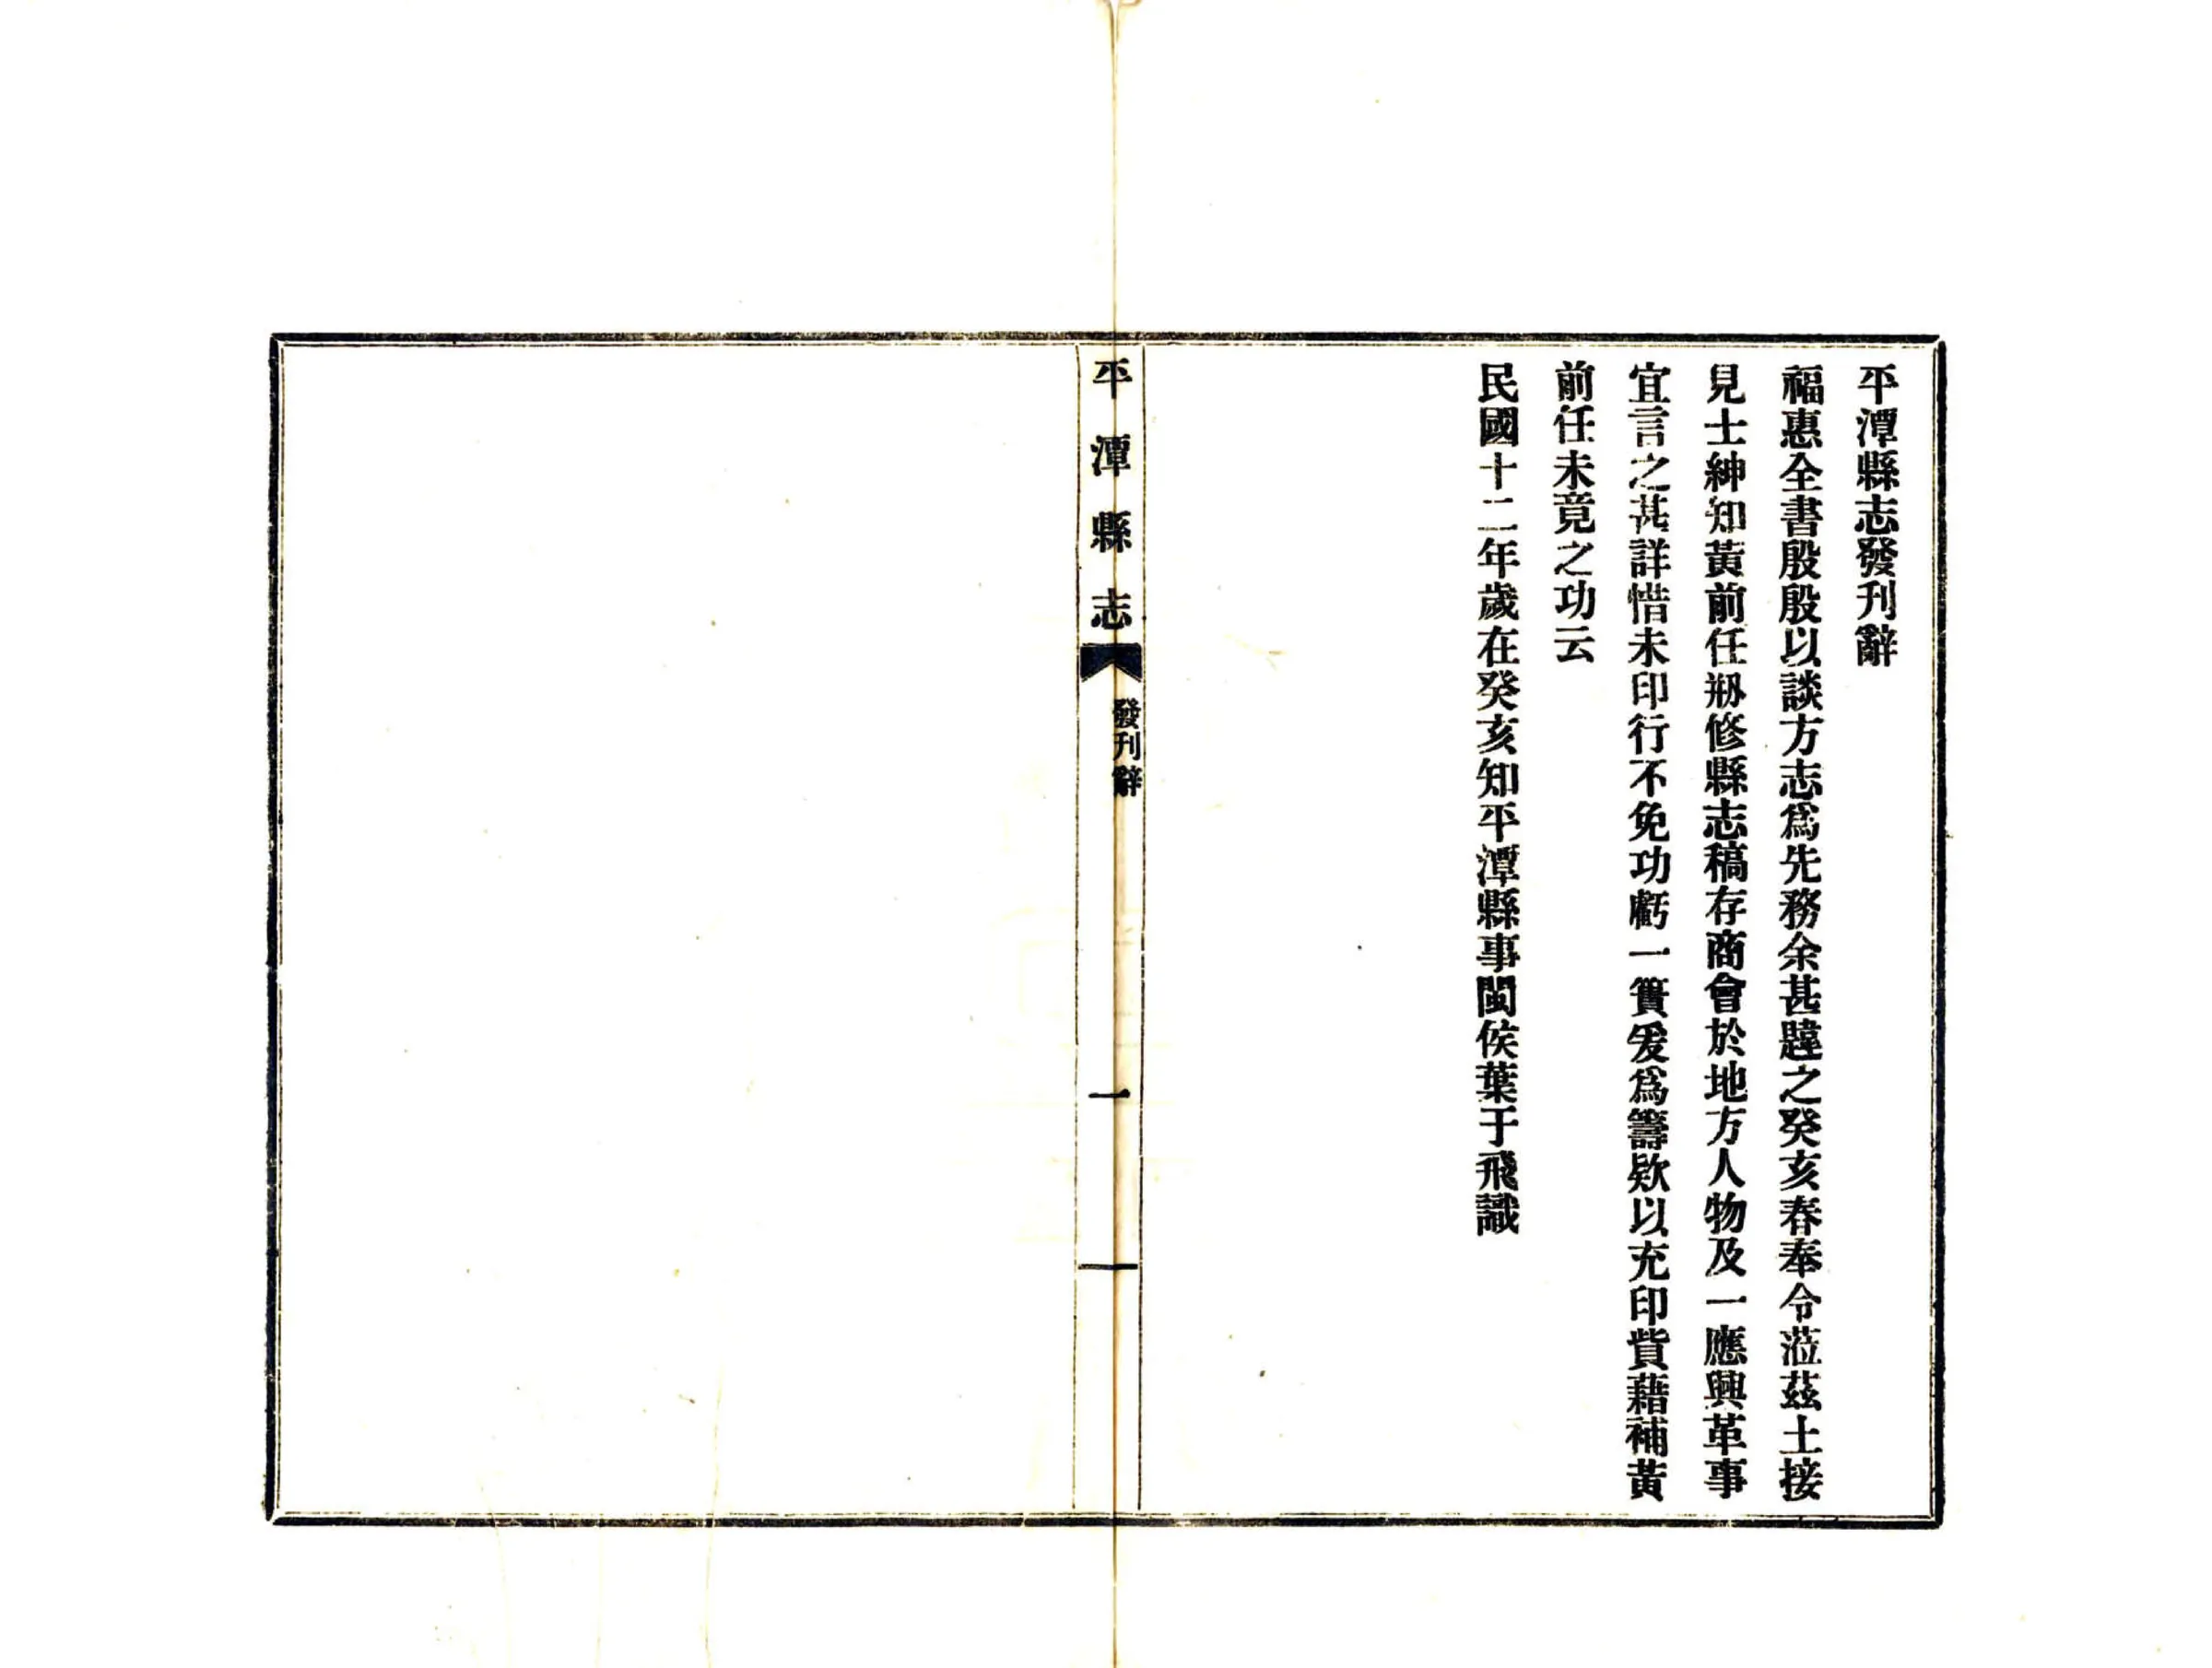 平潭縣志發刊辭
福惠全書殷殷以談方志爲先務余甚韙之癸亥春奉令蒞茲土接
見士紳知黃前任剏修縣志稿存商會於地方人物及一應興革事
宜言之甚詳惜未印行不免功虧一簣爰爲籌欵以充印貲藉補黃
前任未竟之功云
民國十二年歲在癸亥知平潭縣事閩侯葉于飛識
平潭縣志
發刊辭
一